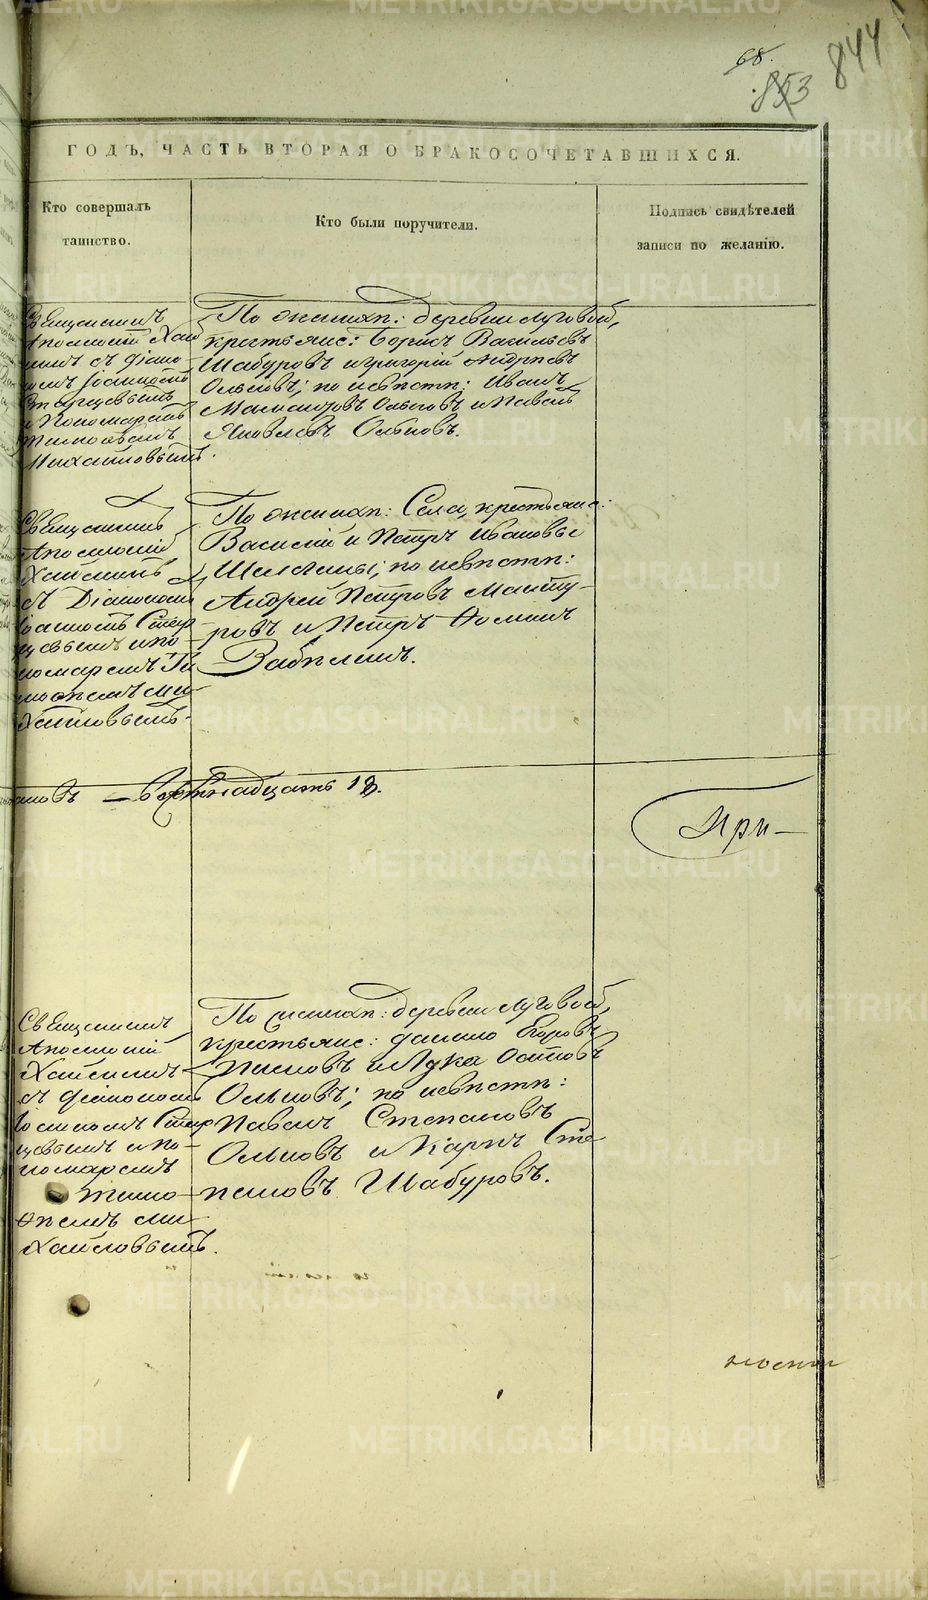 68.
853
844
ГОДЪ, ЧАСТЬ ВТОРАЯ О БРАКОСОЧЕТАВШИХСЯ.
Кто совершалъ
таинство.
Кто были поручители.
Подпись свидѣтелей
записи по желанію.
Священникъ
Аполлоній Хай
съ Діако
номъ Іоанномъ
Старцевымъ
и Пономаремъ
Михайловымъ.
По женихѣ: деревни Луговой,
крестьяне: Борисъ Васильевъ
Шабуровъ и Григорій Андреевъ
Ольковъ; по невѣстѣ: Иванъ
Ольковъ и Павелъ
Яковлевъ Ольковъ.
Священникъ
Аполлоній
съ Діакономъ
Іоанномъ Стар
цевымъ и по-
номаремъ Ти
моѳеемъ Ми
хайловымъ.
По женихѣ: Села, крестьяне:
Василій и Петръ Ивановы
по невѣстѣ:
Андрей Петровъ
ровъ и Петръ Ѳоминъ
Забѣлинъ.
восемнадцать 18.
При—
Священникъ
Аполлоній
съ Діакономъ
Іоанномъ Стар
цевымъ и по-
номаремъ
Тимо
ѳеемъ Ми
хайловымъ.
По женихѣ: деревни Луговой,
крестьяне: Данило Егоровъ
и Лука Осиповъ
Ольковъ; по невѣстѣ:
Павелъ Степановъ
Ольковъ и Карпъ Сте
пановъ Шабуровъ.
METRIKI.GASO-URAL.RU